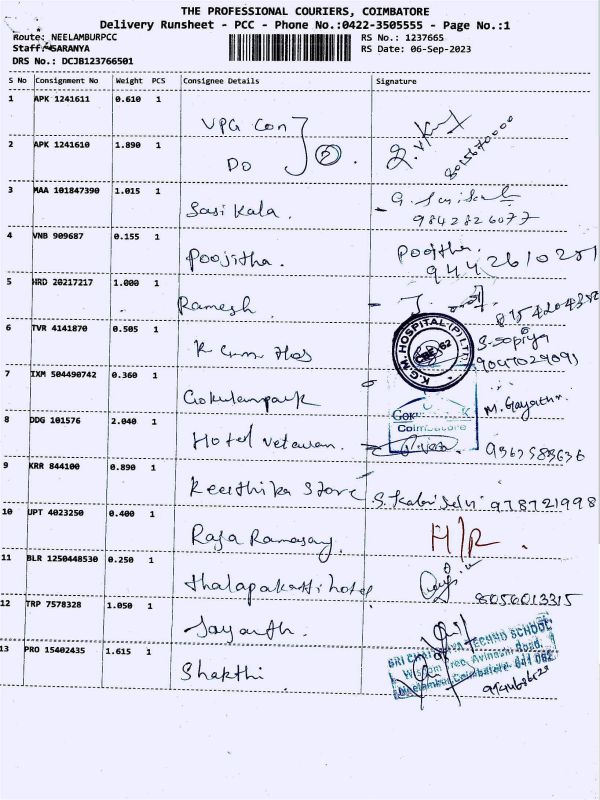 THE PROFESSIONAL COURIERS, COIMBATORE
Delivery Runsheet - PCC - Phone No.:0422-3505555 - Page No.:1
Route: NEELAMBURPCC RS No.: 1237665
Staff: SARANYA RS Date: 06-Sep-2023
DRS No.: DCJB123766501
S No Consignment No Weight PCS Consignee Details Signature
1 APK 1241611 0.610 1 VPG Con
2 APK 1241610 1.890 1 Do 2 8015670000
3 MAA 101847390 1.015 1 Sasi Kala. G. Sasikala
9842826077
4 VNB 909687 0.155 1 Poojitha. Poojtha.
9442610251
5 HRD 20217217 1.000 1 Ramesh
6 TVR 4141870 0.505 1 K Cum Hos K.G.M. HOSPITAL (P) LTD. CBE-62 S. Sopiya
9047029091
7 IXM 504490742 0.360 1 Gokulampark M. Gayathri
Coimbatore
8 DDG 101576 2.040 1 Hotel
9 KRR 844100 0.890 1 Keerthika Store 978721998
10 UPT 4023250 0.400 1 Raja Ramasamy. H/R.
11 BLR 1250448530 0.250 1 thalapakatti hotel 8056013315
12 TRP 7578328 1.050 1 Jayanth.
SRI CHAITANYA TECHNO SCHOOL
13 PRO 15402435 1.615 1 Shakthi Avinashi Road,
Neelambur, Coimbatore- 641 062